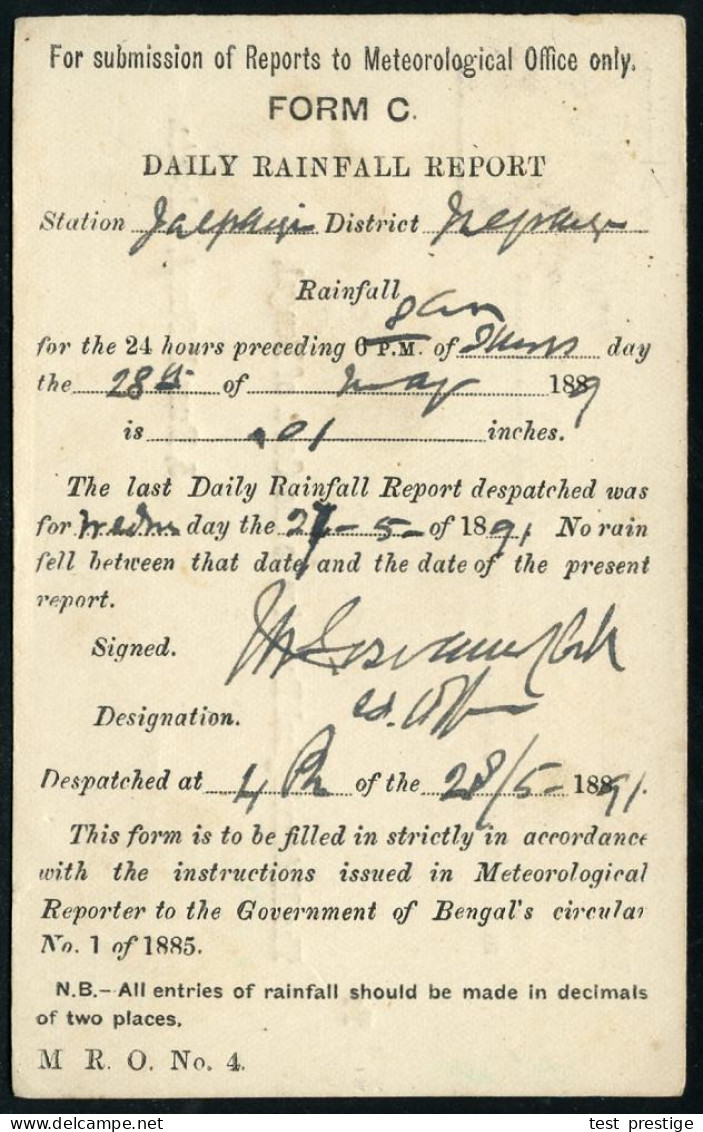 For submission of Reports to Meteorological Office only.
FORM C.
DAILY RAINFALL REPORT
Station Jalpaiguri District Jalpaiguri
Rainfall
8 am
for the 24 hours preceding 6 P.M. of Thurs day
the 28th of May 1889
is .01 inches.
The last Daily Rainfall Report despatched was
for Wednes day the 27-5- of 1891. No rain
fell between that date and the date of the present
report.
Signed.
Designation.
Despatched at 4 Pm of the 28/5- 18891.
This form is to be filled in strictly in accordance
with the instructions issued in Meteorological
Reporter to the Government of Bengal's circular
No. 1 of 1885.
N.B.—All entries of rainfall should be made in decimals
of two places.
M R. O. No. 4.
test prestige